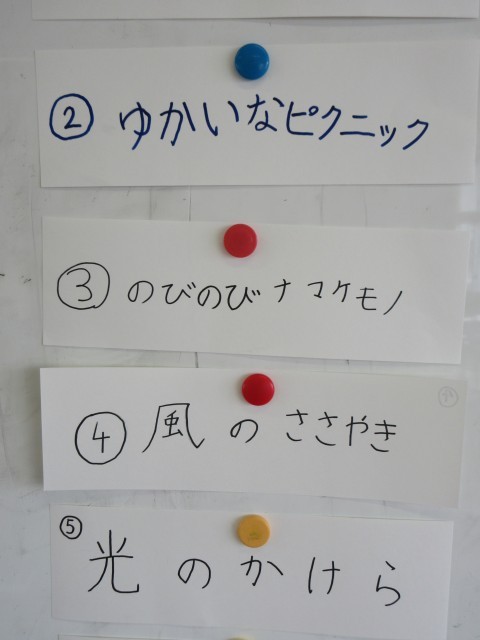 ② ゆかいなピクニック
③ のびのびナマケモノ
④ 風のささやき
⑤ 光のかけら